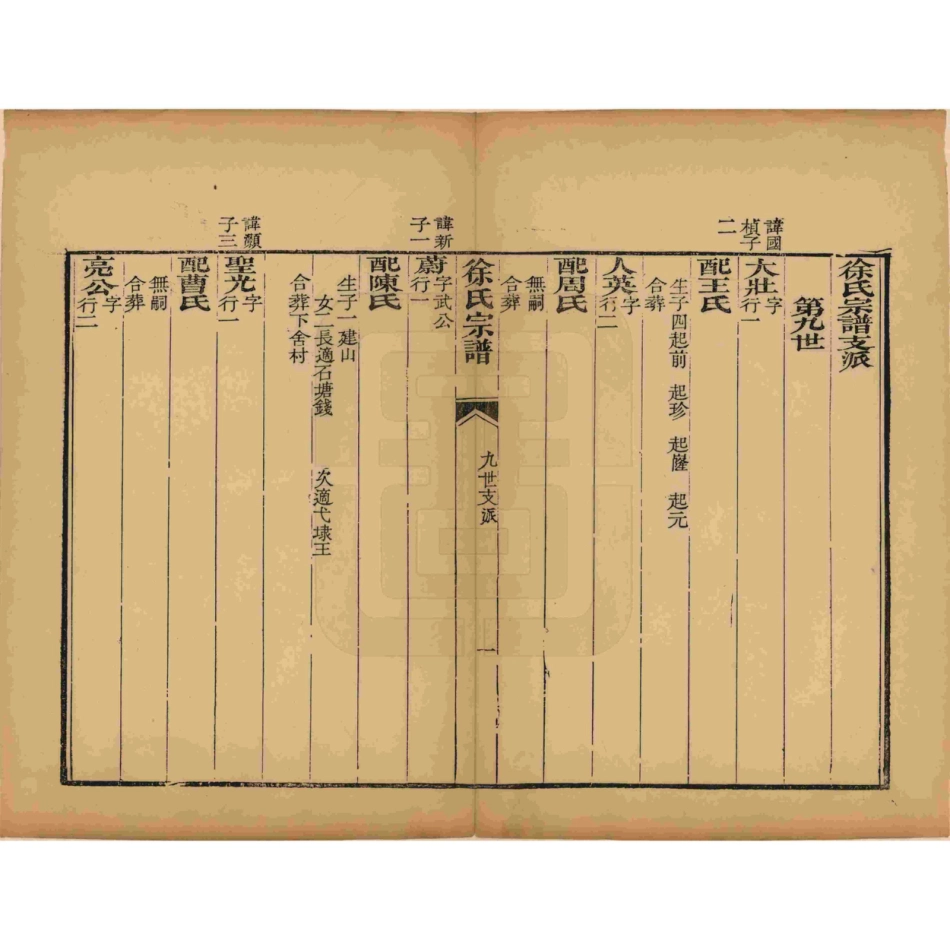 徐氏宗譜支派
第九世
諱國
楨子
二
大壯字
行一
配王氏
生子四起前 起珍 起隆 起元
合葬
人英字
行二
配周氏
無嗣
合葬
徐氏宗譜
九世支派
一
諱新
子一
蔚字武公
行一
配陳氏
生子一建山
女二長適石塘錢 次適弋埭王
合葬下舍村
諱顯
子三
聖光字
行一
配曹氏
無嗣
合葬
亮公字
行二